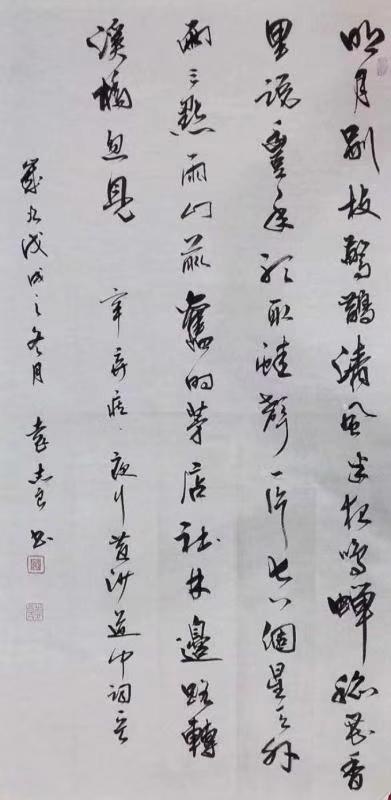 明月别枝驚鵲清風半夜鳴蟬稻花香
里説豐年听取蛙聲一片七八個星天外
兩三點雨山前舊时茅店社林邊路轉
溪橋忽見 辛弃疾·夜行黄沙道中词
歲在戊戌之冬月 袁志 书